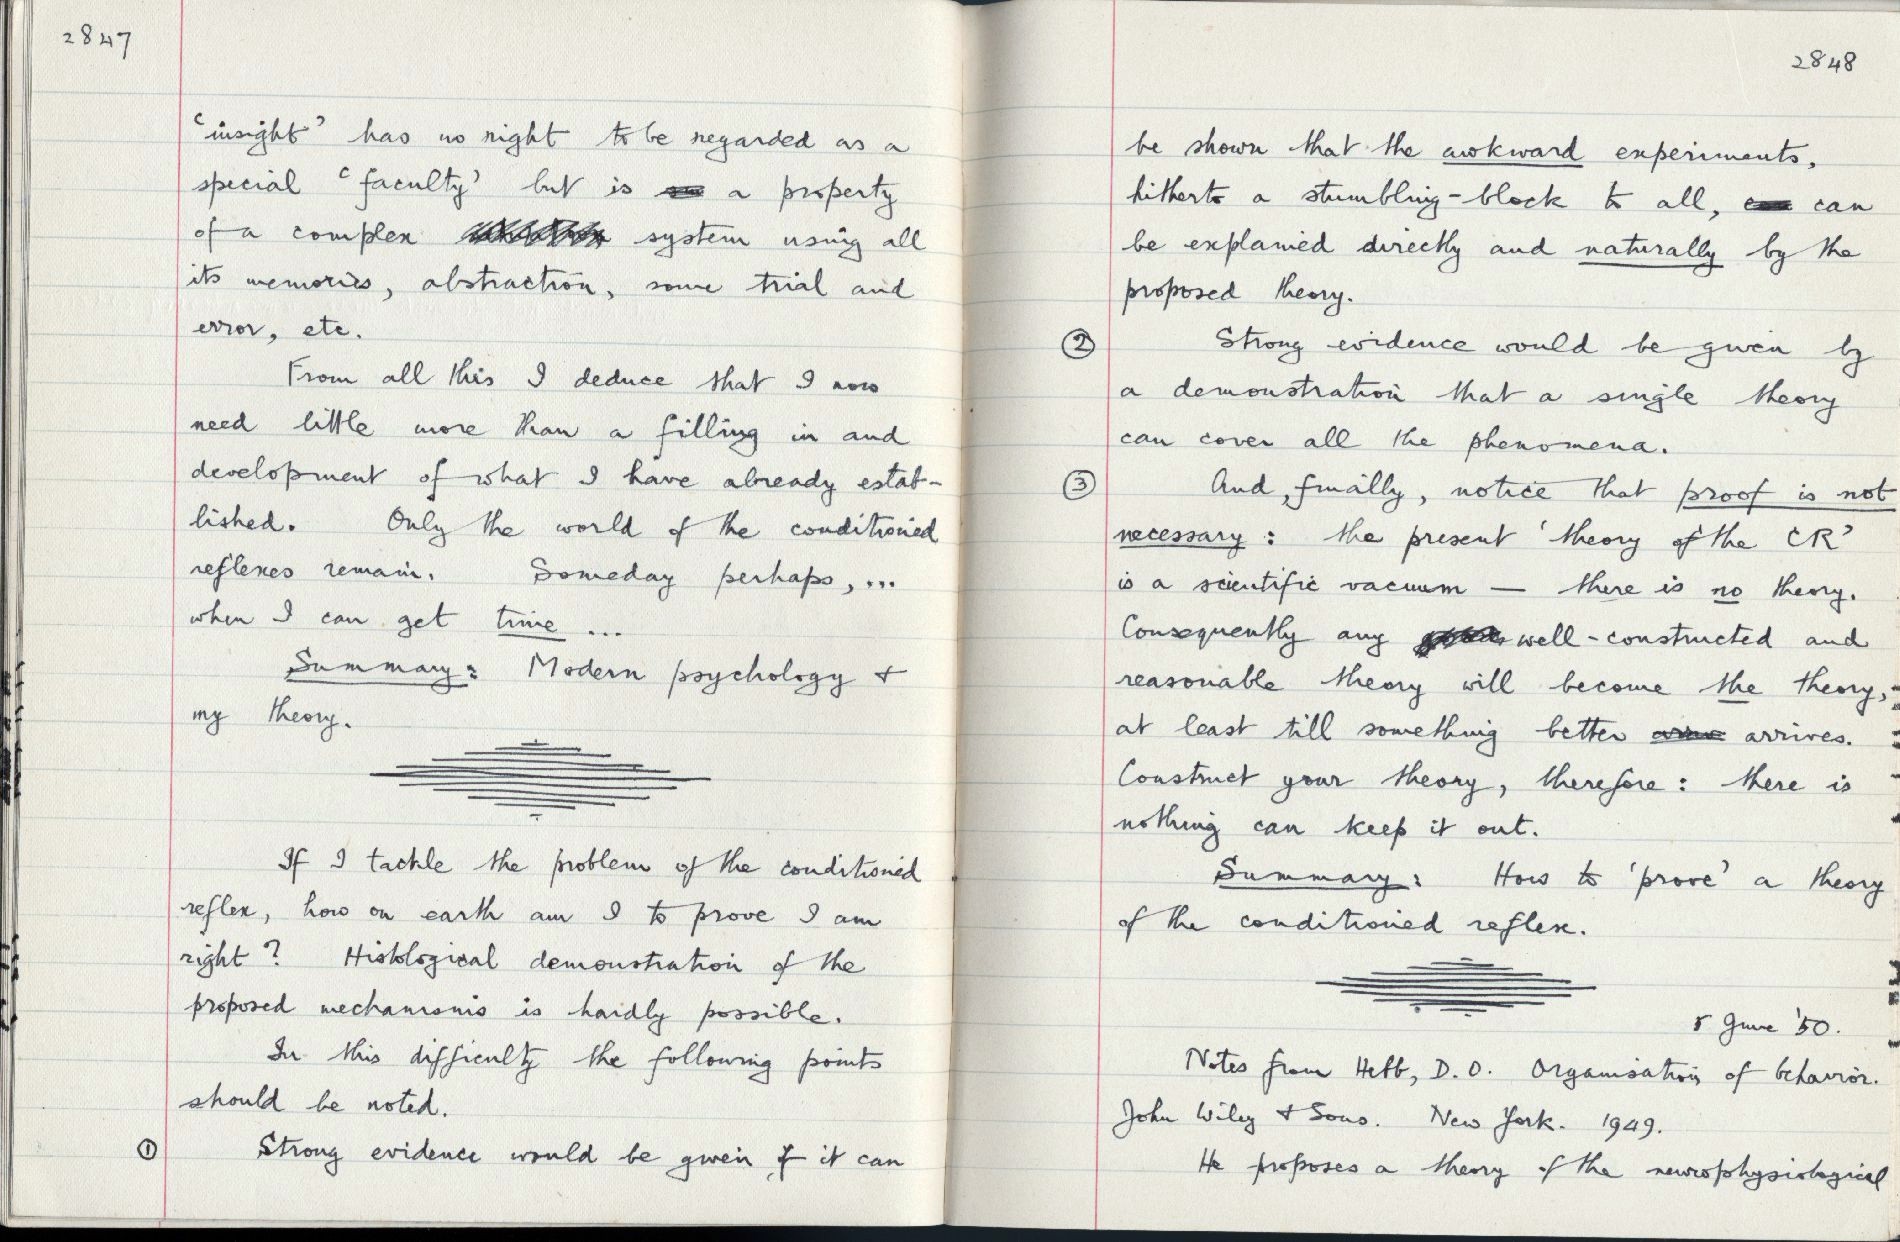 2847
'insight' has no right to be regarded as a
special 'faculty' but is a property
of a complex system using all
its memories, abstraction, some trial and
error, etc.
From all this I deduce that I now
need little more than a filling in and
development of what I have already estab-
lished. Only the world of the conditioned
reflexes remain. Someday perhaps, ...
when I can get time ...
Summary: Modern psychology +
my theory.
If I tackle the problem of the conditioned
reflex, how on earth am I to prove I am
right? Histological demonstration of the
proposed mechanisms is hardly possible.
In this difficulty the following points
should be noted.
① Strong evidence would be given if it can
2848
be shown that the awkward experiments,
hitherto a stumbling-block to all, can
be explained directly and naturally by the
proposed theory.
② Strong evidence would be given by
a demonstration that a single theory
can cover all the phenomena.
③ And, finally, notice that proof is not
necessary: the present 'theory of the CR'
is a scientific vacuum — there is no theory.
Consequently any well-constructed and
reasonable theory will become the theory,
at least till something better arrives.
Construct your theory, therefore: there is
nothing can keep it out.
Summary: How to 'prove' a theory
of the conditioned reflex.
5 June '50.
Notes from Hebb, D.O. Organisation of behavior.
John Wiley + Sons. New York. 1949.
He proposes a theory of the neurophysiological